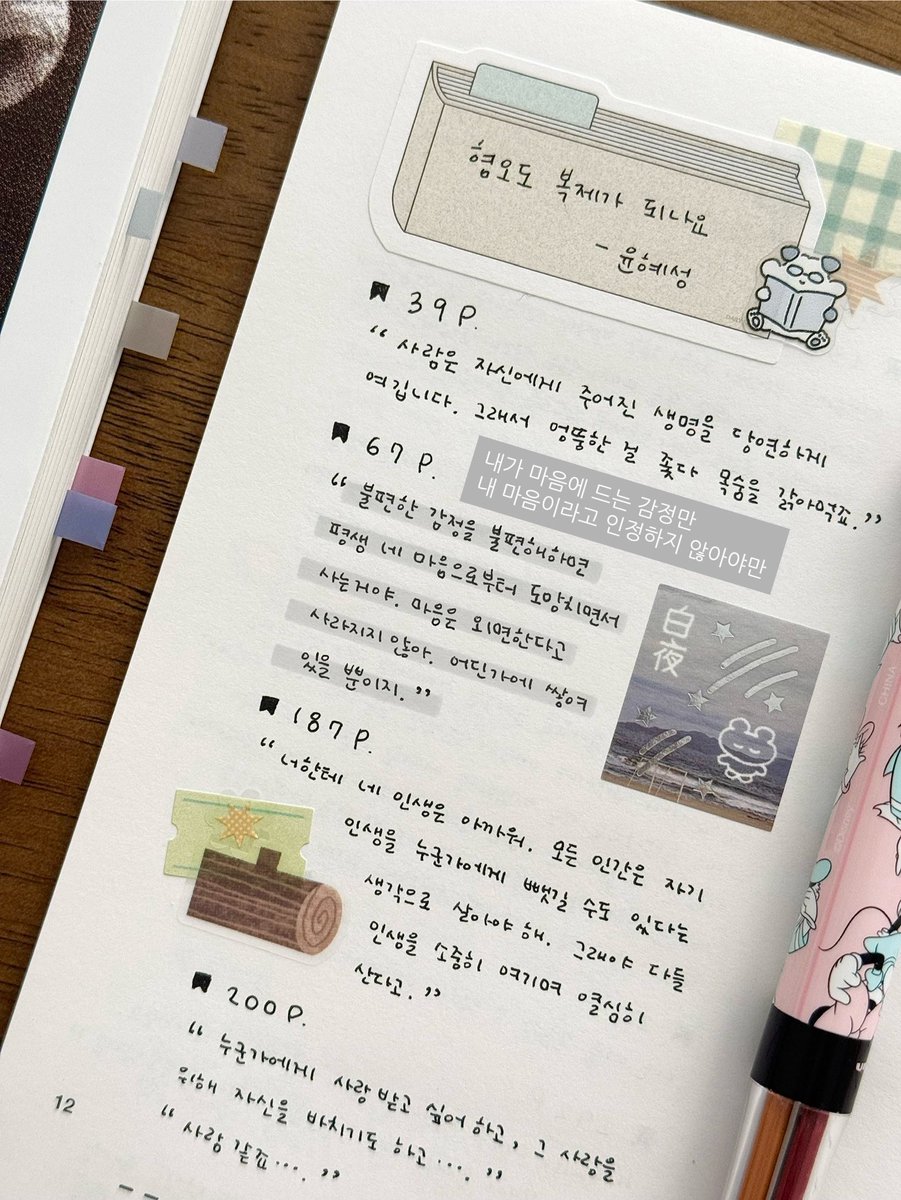 혐오도 복제가 되나요
- 윤혜성
39 P.
“ 사람은 자신에게 주어진 생명을 당연하게
여깁니다. 그래서 엉뚱한 걸 좇다 목숨을 갉아먹죠. ”
67 P.
내가 마음에 드는 감정만
내 마음이라고 인정하지 않아야만
“ 불편한 감정을 불편해하면
평생 네 마음으로부터 도망치면서
사는거야. 마음은 외면한다고
사라지지 않아. 어딘가에 쌓여
있을 뿐이지. ”
白夜
187 P.
“ 너한테 네 인생은 아까워. 모든 인간은 자기
인생을 누군가에게 뺏길 수도 있다는
생각으로 살아야 해. 그래야 다들
인생을 소중히 여기며 열심히
산다고. ”
200 P.
“ 누군가에게 사랑 받고 싶어 하고, 그 사랑을
위해 자신을 바치기도 하고 …. ”
“ 사람 같죠 …. ”
12
CHINA
©Disney